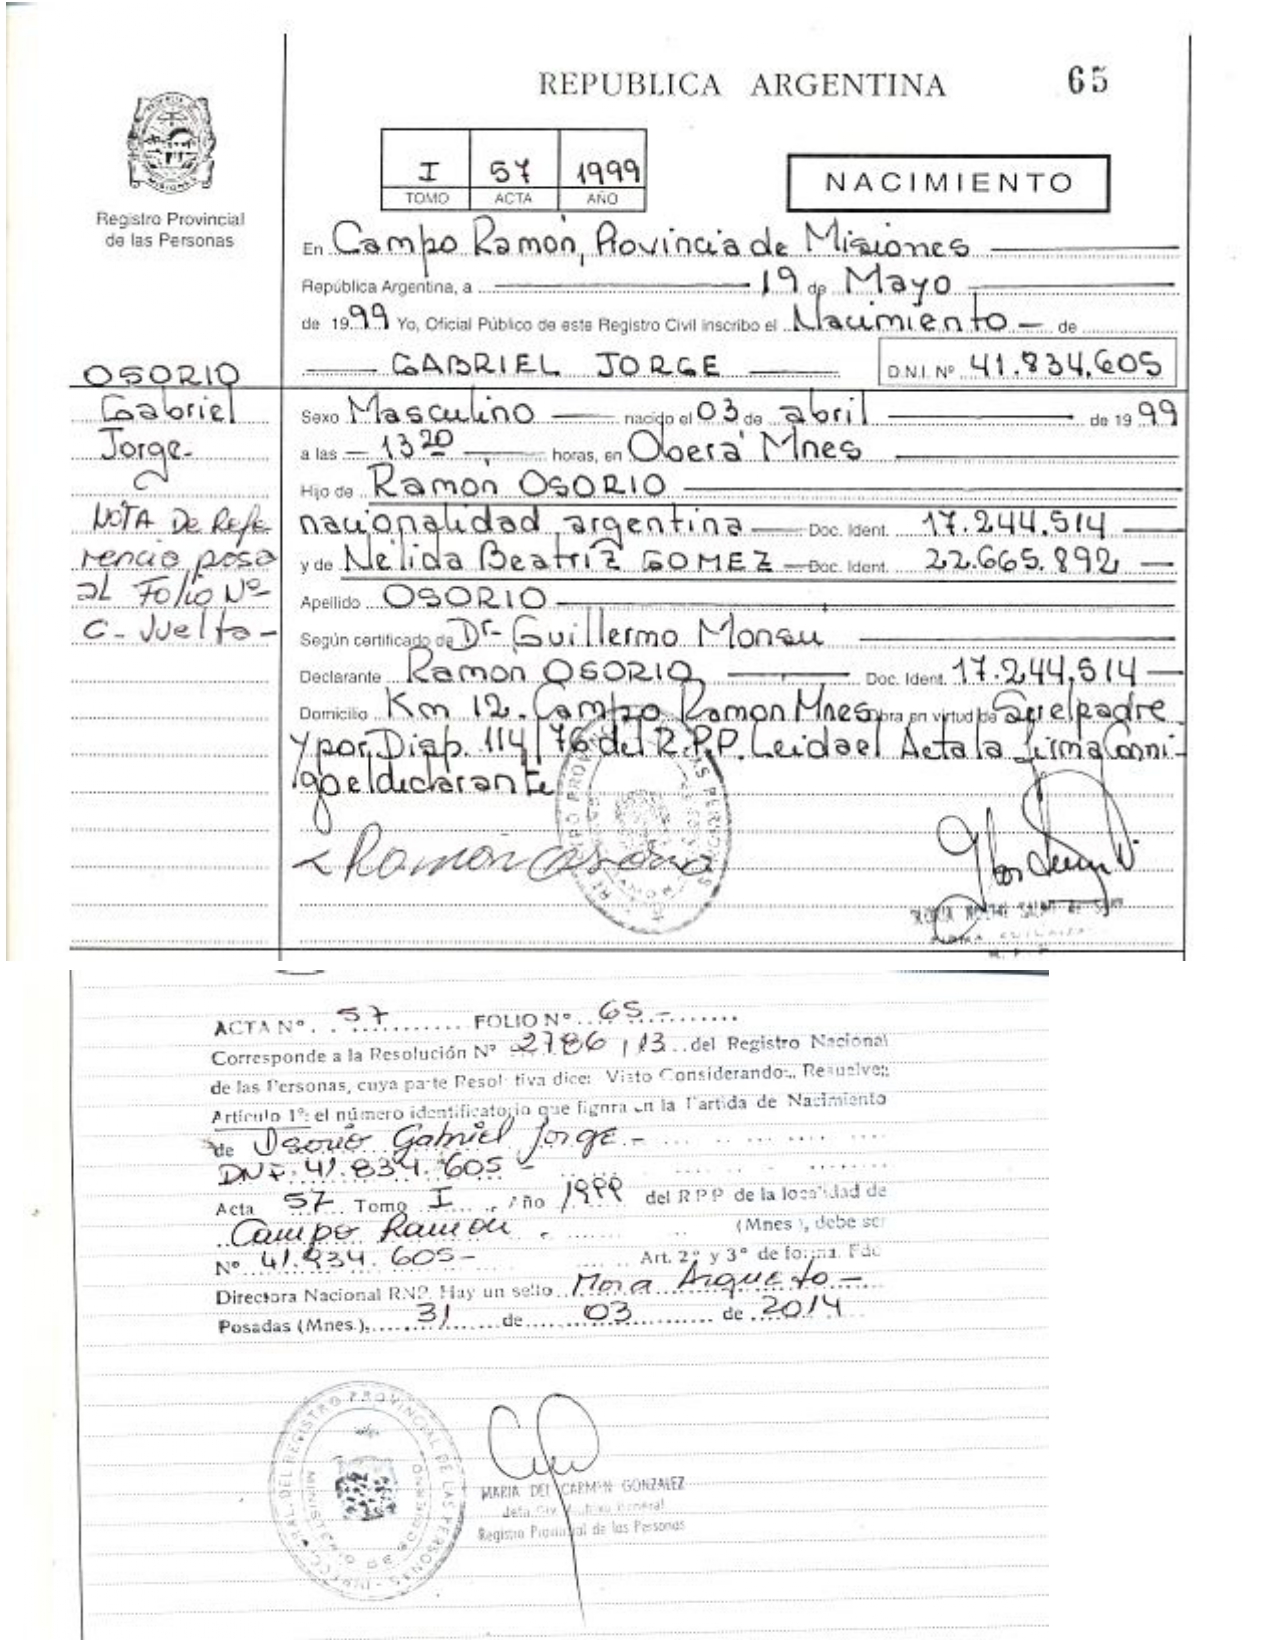 REPUBLICA ARGENTINA 65
I 57 1999
TOMO ACTA AÑO
NACIMIENTO
MISIONES
Registro Provincial
de las Personas
En Campo Ramón, Provincia de Misiones
República Argentina, a 19 de Mayo
de 1999 Yo, Oficial Público de este Registro Civil inscribo el Nacimiento de
GABRIEL JORGE D.N.I. Nº 41.834.605
OSORIO
Gabriel
Jorge-
NOTA De Refe
rencia pasa
al Folio Nº
C- Vuelta-
Sexo Masculino nacido el 03 de abril de 1999
a las 13 20 horas, en Oberá Mnes
Hijo de Ramón OSORIO
nacionalidad argentina Doc. Ident. 17.244.514
y de Nélida Beatriz GOMEZ Doc. Ident. 22.665.892
Apellido OSORIO
Según certificado de Dr- Guillermo Monsu
Declarante Ramón OSORIO Doc. Ident. 17.244.514
Domicilio Km 12. Campo Ramon Mnes obra en virtud de Ser el padre
y por Disp. 114/76 del R.P.P. Leida el Acta la firma Conmi-
go el declarante
Ramon Osorio
ACTA Nº 57 FOLIO Nº 65-
Corresponde a la Resolución Nº 2786/13 del Registro Nacional
de las Personas, cuya parte Resolutiva dice: Visto Considerando:, Resuelve:
Artículo 1º: el número identificatorio que figura en la Partida de Nacimiento
de Osorio Gabriel Jorge-
DNI. 41.834.605-
Acta 57 Tomo I Año 1999 del RPP de la localidad de
Campo Ramon (Mnes), debe ser
Nº 41.934.605- Art. 2º y 3º de forma. Fdo
Directora Nacional RNP. Hay un sello Mora Arqueto-
Posadas (Mnes.), 31 de 03 de 2014
MARIA DEL CARMEN GONZALEZ
Registro Provincial de las Personas